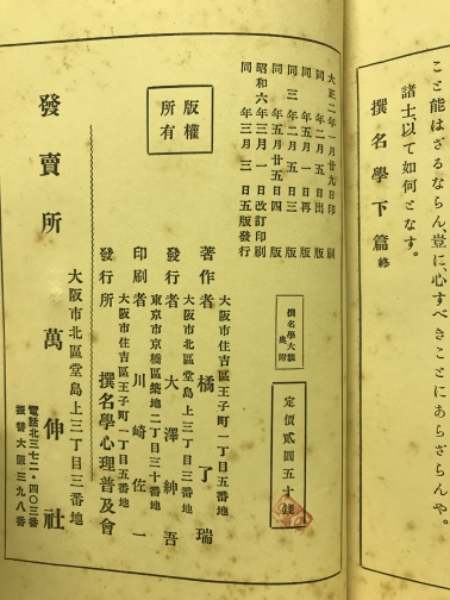 こと能はざるならん、豈に、心すべきことにあらざらんや。
諸士、以て如何となす。
撰名學下篇 終
大正二年一月廿九日印刷
同 年二月五日出版
同 年五月一日再版
同 三年二月五日三版
同 年五月廿五日四版
昭和六年三月一日改訂印刷
同 年三月三日五版發行
版權
所有
撰名學大鑑
奥附
定價貳圓五十錢
大阪市住吉區王子町一丁目五番地
著作者 橘了瑞
大阪市北區堂島上三丁目三番地
發行者 大澤紳吾
東京市京橋區築地二丁目三十番地
印刷者 川崎佐一
大阪市住吉區王子町一丁目五番地
發行所 撰名學心理普及會
大阪市北區堂島上三丁目三番地
發賣所 萬伸社
電話北三七二一・四〇三番
振替大阪三九八番